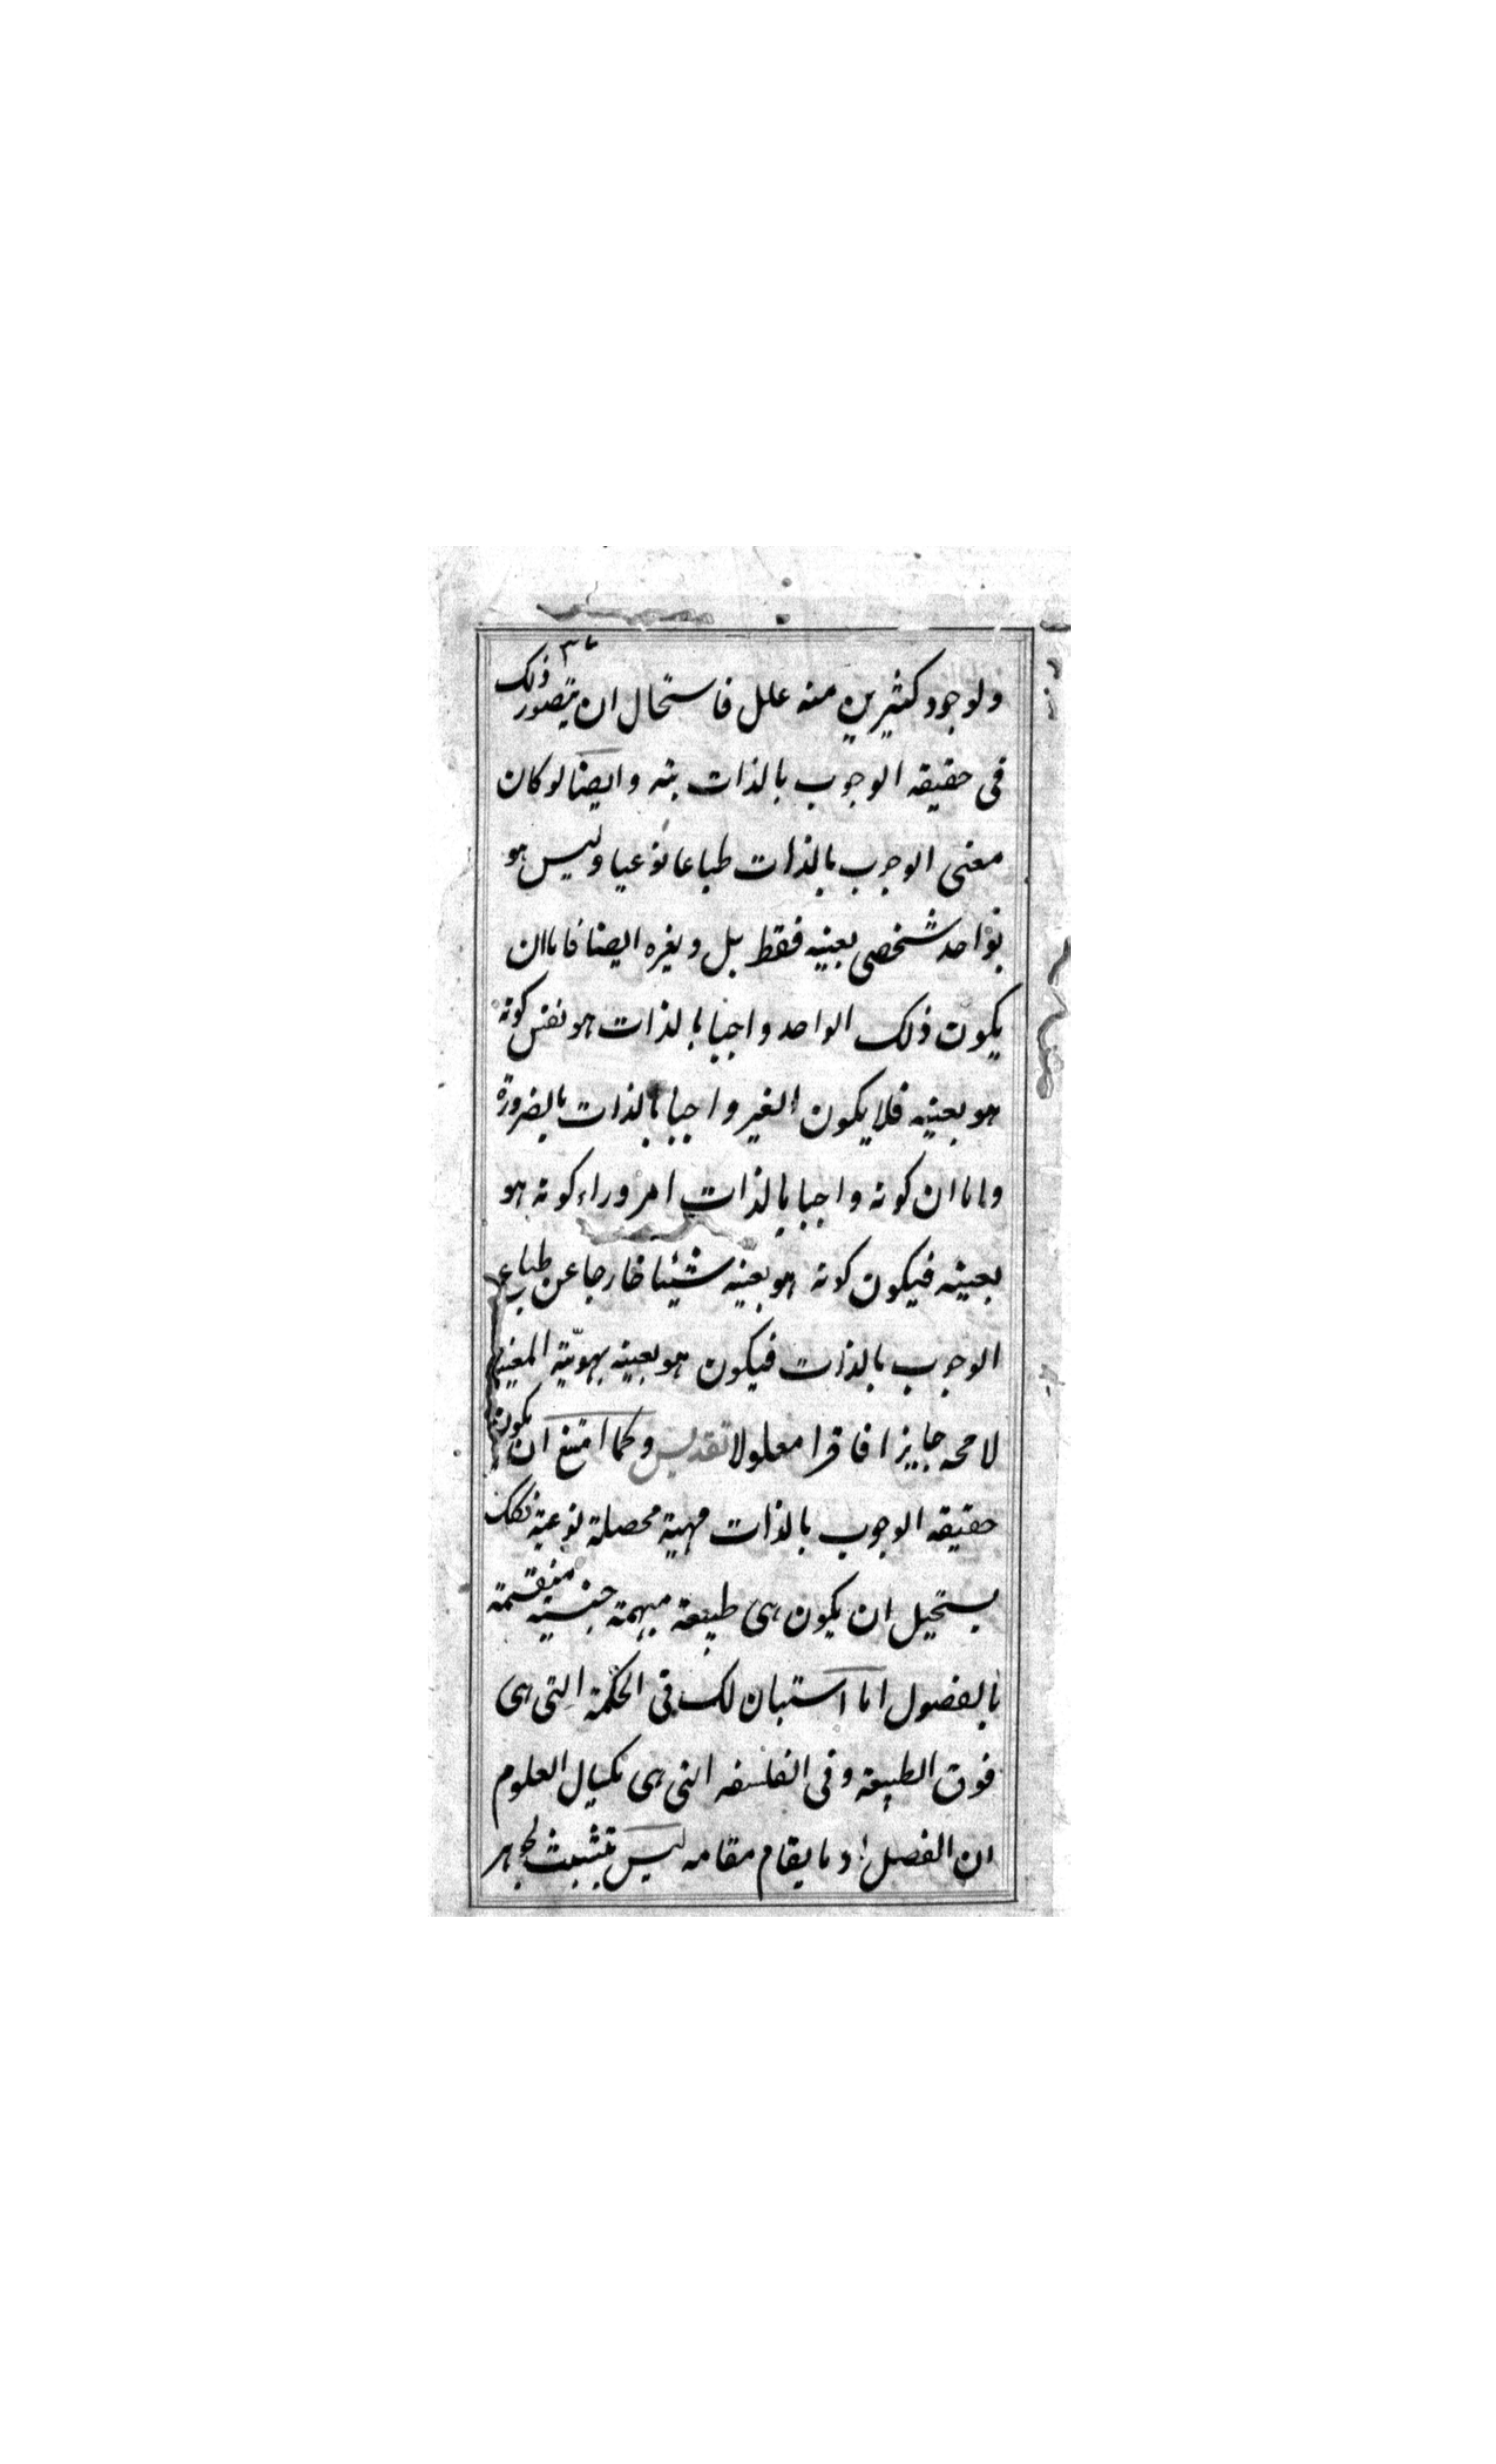 ولوجود كثيرين منه علل فاستحال ان يتصور ذلك
فى حقيقه الوجوب بالذات بته وايضا لو كان
معنى الوجوب بالذات طباعا نوعيا وليس هو
بواحد شخصى بعينه فقط بل ولغيره ايضا فاما ان
يكون ذلك الواحد واجبا بالذات هو نفس كونه
هو بعينه فلا يكون الغير واجبا بالذات بالضرورة
واما ان كونه واجبا بالذات امر وراء كونه هو
بعينه فيكون كونه هو بعينه شيئا خارجا عن طباع
الوجوب بالذات فيكون هو بعينه بهويته المعينه
لا محه جايزا فاقرا معلولا تقديس وكما امتنع ان يكون
حقيقه الوجوب بالذات مهية محصلة نوعية فكك
يستحيل ان يكون هى طبيعة مبهمة جنسية منقسمة
بالفصول اما استبان لك فى الحكمة التى هى
فوق الطبيعة وفى الفلسفه التى هى مكيال العلوم
ان الفصل او ما يقام مقامه ليس تشبث لجوهر